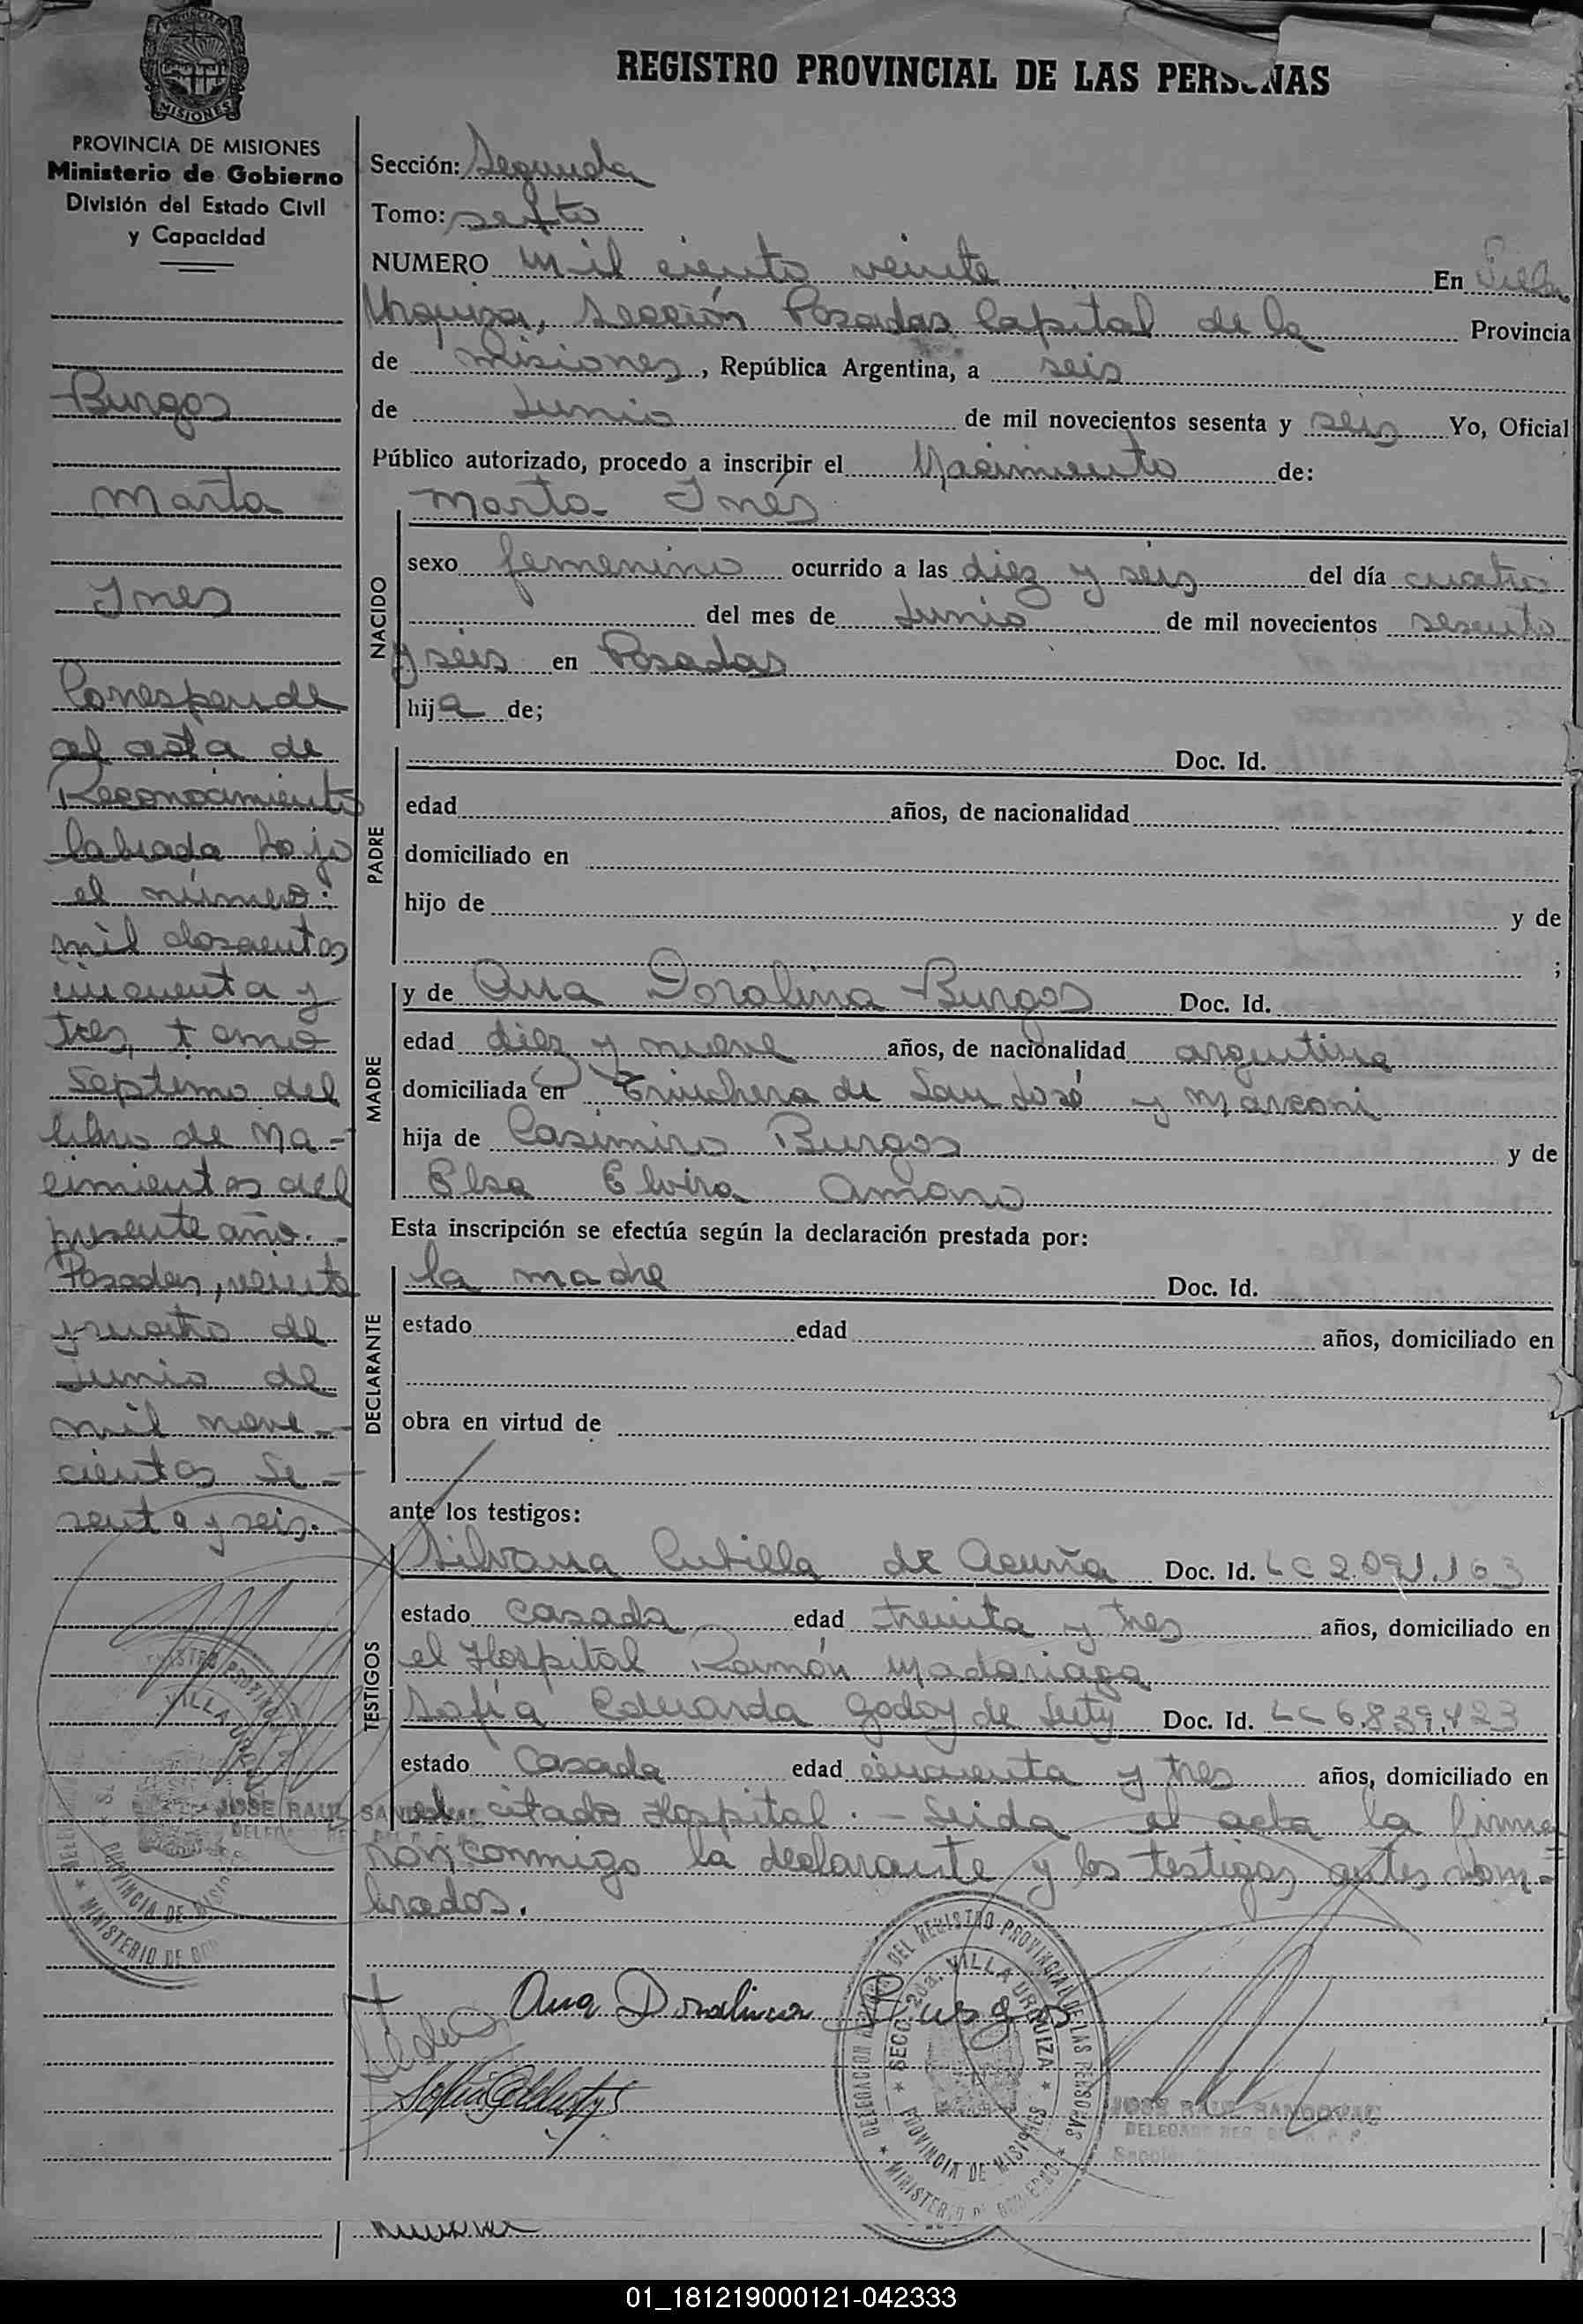 REGISTRO PROVINCIAL DE LAS PERSONAS
PROVINCIA DE MISIONES
Ministerio de Gobierno
División del Estado Civil
y Capacidad
Burgos
Marta
Ines
Corresponde
al acta de
Reconocimiento
labrada bajo
el número:
mil doscientos
cincuenta y
tres, tomo
Septimo del
libro de Na-
cimientos del
presente año.-
Posadas, veinte
y cuatro de
Junio de
mil nove-
cientos Se-
senta y seis.
Sección: Segunda
Tomo: sexto
NUMERO mil ciento veinte En Villa
Urquiza, Sección Posadas Capital de la Provincia
de Misiones, República Argentina, a seis
de Junio de mil novecientos sesenta y seis Yo, Oficial
Público autorizado, procedo a inscribir el Nacimiento de:
NACIDO
Marta Inés
sexo femenino ocurrido a las diez y seis del día cuatro
del mes de Junio de mil novecientos sesenta
y seis en Posadas
hija de;
PADRE
Doc. Id.
edad años, de nacionalidad
domiciliado en
hijo de y de
;
MADRE
y de Ana Doralina Burgos Doc. Id.
edad diez y nueve años, de nacionalidad argentina
domiciliada en Trinchera de San José y Marconi
hija de Casimiro Burgos y de
Elsa Elvira Amaro
Esta inscripción se efectúa según la declaración prestada por:
DECLARANTE
la madre Doc. Id.
estado edad años, domiciliado en
obra en virtud de
ante los testigos:
TESTIGOS
Silvana Cubilla de Acuña Doc. Id. LC 2.091.163
estado casada edad treinta y tres años, domiciliado en
el Hospital Ramón Madariaga
Sofía Eduarda Godoy de Doc. Id. LC 6.839.423
estado casada edad cincuenta y tres años, domiciliado en
el citado Hospital.- Leida el acta la firma
ron conmigo la declarante y los testigos antes nom-
brados.
Ana Doralina Burgos
DELEGACION DEL REGISTRO PROVINCIAL DE LAS PERSONAS
SECC. 2da. VILLA URQUIZA
PROVINCIA DE MISIONES
MINISTERIO DE GOBIERNO
JOSE RAUL SANDOVAL
01_181219000121-042333